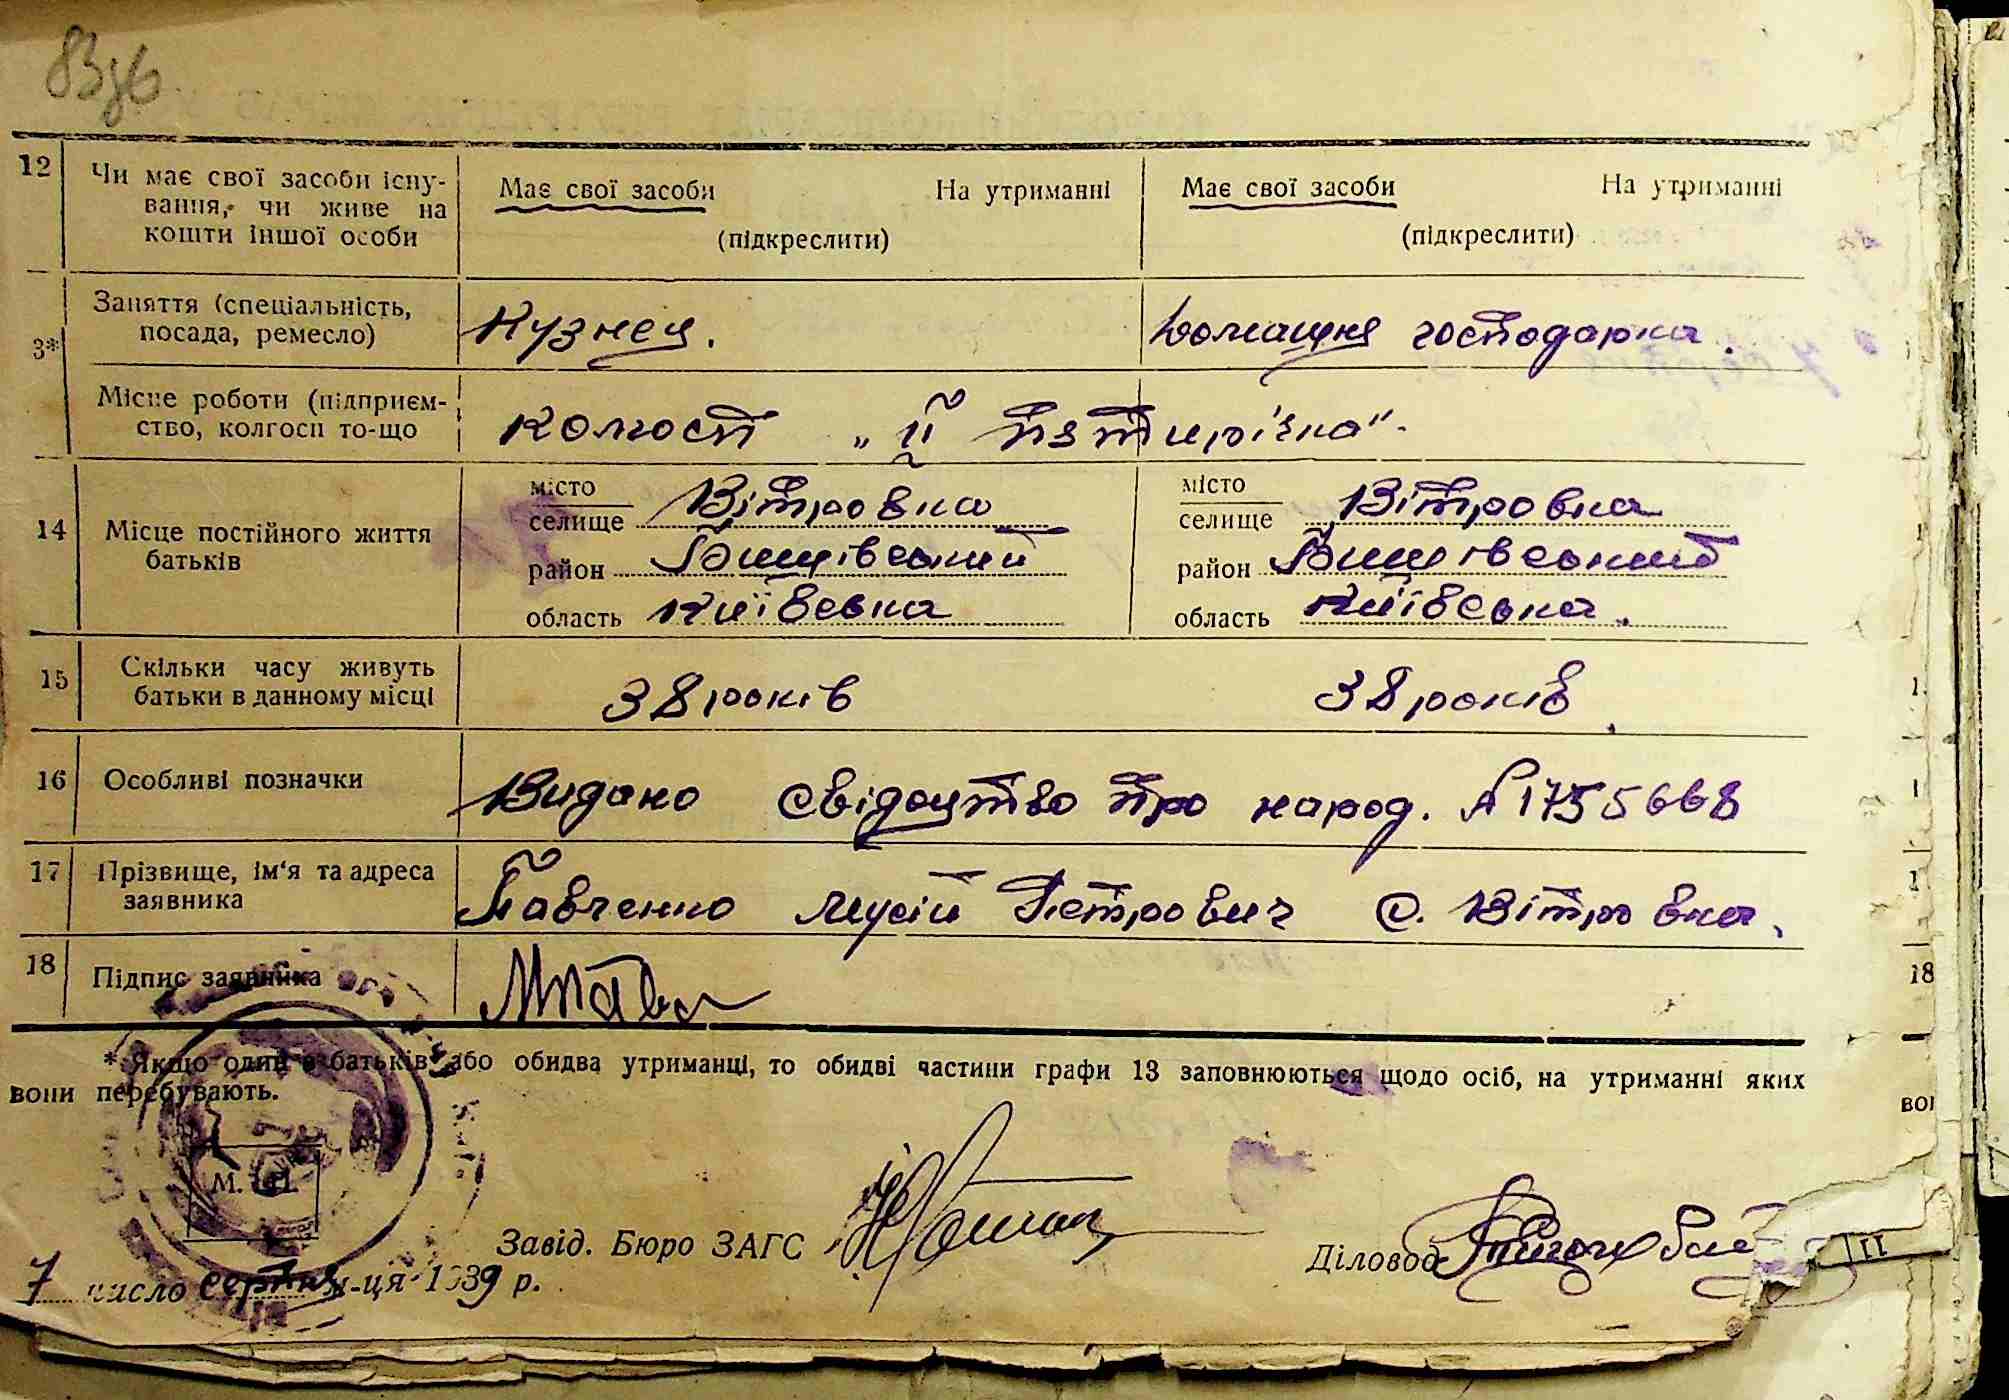 83зв
12 Чи має свої засоби існу-
вання, чи живе на
кошти іншої особи
Має свої засоби На утриманні
(підкреслити)
Має свої засоби На утриманні
(підкреслити)
3* Заняття (спеціальність,
посада, ремесло)
Кузнец. Домашня господарка.
Місце роботи (підприєм-
ство, колгосп то-що
Колгосп „ІІ пятирічка“.
14 Місце постійного життя
батьків
місто
селище Вітровка
район Бишівський
область Київська
місто
селище Вітровка
район Бишівський
область Київська.
15 Скільки часу живуть
батьки в данному місці
38 років 38 років.
16 Особливі позначки
Видано свідоцтво про народ. А 1755668
17 Прізвище, ім‘я та адреса
заявника
Павченко Мусій Петрович с. Вітровка.
18 Підпис заявника
* Якщо один з батьків або обидва утриманці, то обидві частини графи 13 заповнюються щодо осіб, на утриманні яких
вони перебувають.
М.
Завід. Бюро ЗАГС
Діловод
7 число серпня м-ця 1939 р.
18
вог